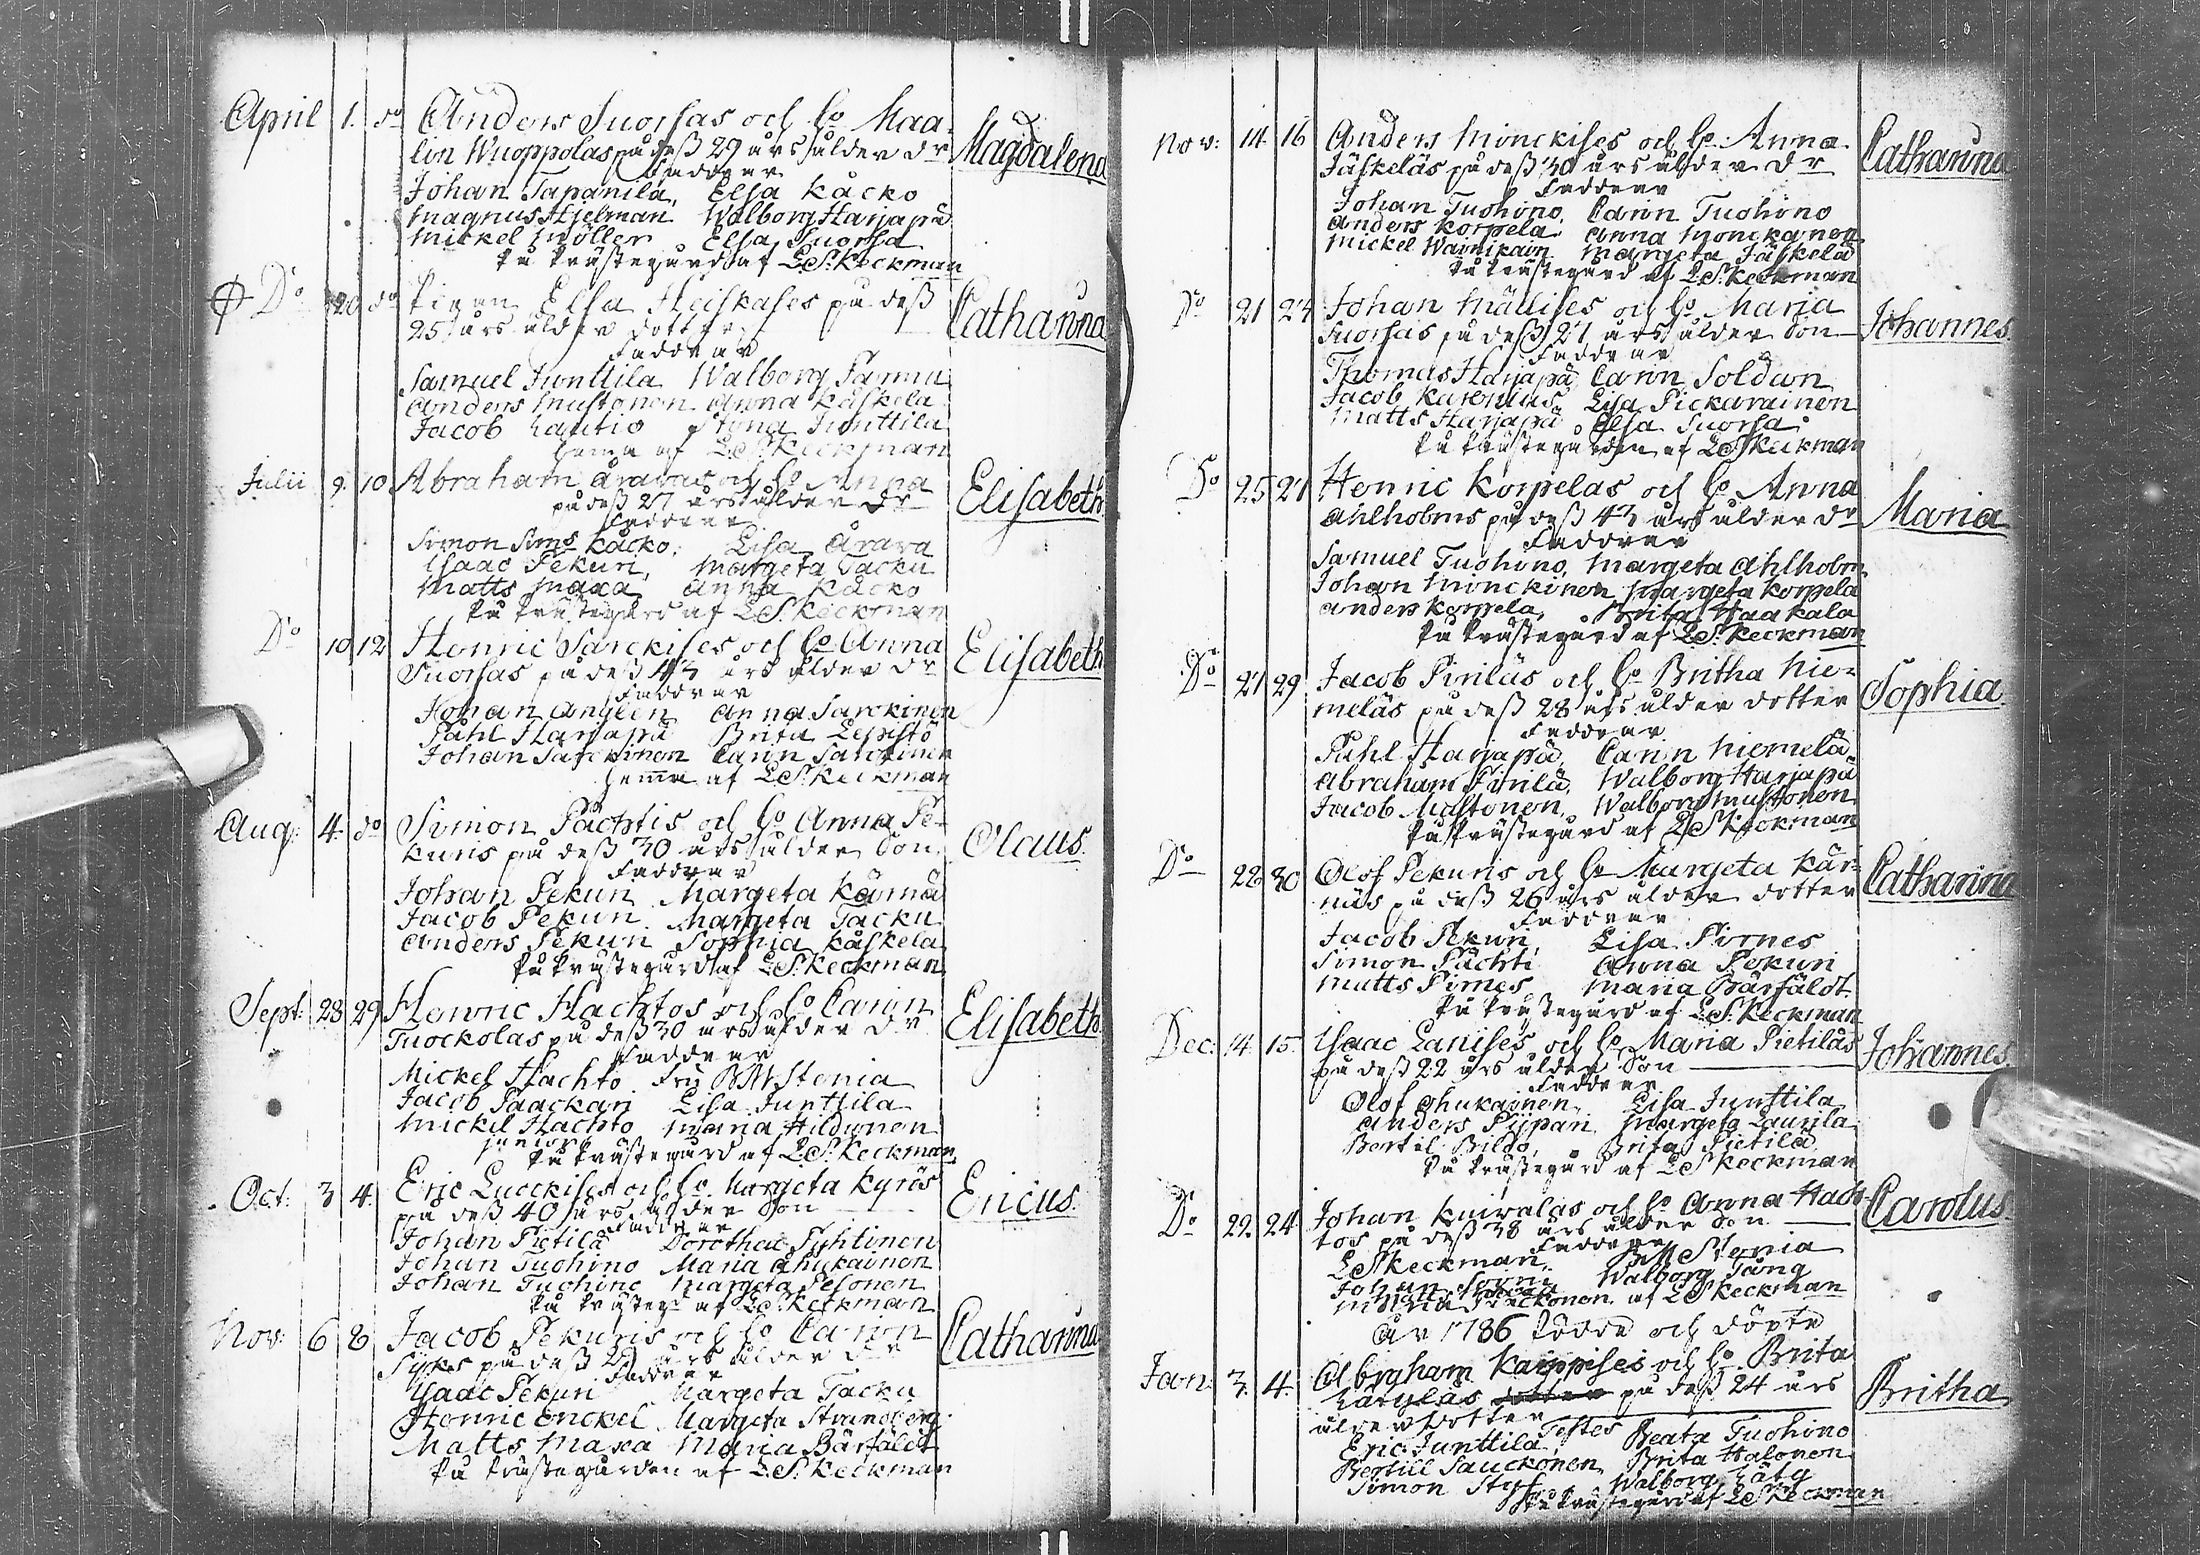 April 1. do Anders Suorsas och h:o Maa-
lin Wuoppolas på dess 29 års ålder dr Magdalena
Faddrar
Johan Tapanila, Elsa Kacko
Magnus Hjelman Walborg Harjapä
Mickel Möller Elsa Suorsa
På Prästegård af L.S. Keckman
Do 20 do Pigan Elsa Heiskases på dess
25 års ålder dotter Catharina
Faddrar
Samuel Junttila Walborg
Anders Mustonen Anna Käskelä
Jacob Lautio Stina Junttila
Hema af L.S. Keckman
Julii 9. 10 Abraham Äraras och h:o Anna
på dess 27 års ålder dr Elisabeth
Faddrar
Simon Sims Kacko, Lisa Ärara
Isaac Pekuri, Margeta Tacku
Matts Maxa Anna Kacko
På Prästegård af L.S. Keckman
Do 10 12 Henric Sarckises och h:o Anna
Suorsas på dess 43 års ålder dr Elisabeth
Faddrar
Johan Angeen Anna Sarckinen
Påhl Harjapä Brita Lepistö
Johan Sarckinen Carin Sarckinen
Hema af L.S. Keckman
Aug: 4. do Simon Pächtis och h:o Anna Pe-
kuris på dess 30 års ålder Son Olaus.
Faddrar
Johan Pekuri Margeta Kärnä
Jacob Pekuri Margeta Tacku
Anders Pekuri Sophia Käskelä
På Prästegård af L.S. Keckman
Sept: 28 29 Henric Hachtos och h:o Carin
Tuockolas på dess 30 års ålder dr Elisabeth
Faddrar
Mickel Hachto Fru BM Stenia
Jacob Paackari Lisa Junttila
Mickel Hachto Maria Hildunen
junior
På Prästegård af L.S. Keckman
Oct: 3 4. Eric Luockises och h:o Margeta Kyrös
på dess 40 års ålder Son Ericus.
Faddrar
Johan Pietilä Dorothea Pyhtinen
Johan Tuohino Maria Ohukainen
Johan Tuohino Margeta Pesonen
På Prästegd af L.S. Keckman
Nov: 6 8 Jacob Pekuris och h:o Carin
Sykes på dess 29 års ålder dr Catharina
Faddrar
Isaac Pekuri Margeta Tacku
Henric Enckel Margeta Strandberg
Matts Maxa Maria Bärfäldt
På Prästegården af L.S. Keckman
Nov: 14. 16 Anders Minckises och h:o Anna
Jäskeläs på dess 30 års ålder dr Catharina
Faddrar
Johan Tuohino, Carin Tuohino
Anders Korpela, Anna Monckanen
Mickel Margeta Jäskelä
På Prästegård af L.S. Keckman
Do 21 24 Johan Mällises och h:o Maria
Suorsas på dess 27 års ålder Son Johannes.
Faddrar
Thomas Harjapä, Carin Soldan
Jacob Karenius, Lisa Pickarainen
Matts Harjapä Elsa Suorsa
På Prästegården af L.S. Keckman
Do 25 27 Henric Korpelas och h:o Anna
Ahlholms på dess 43 års ålder dr Maria
Faddrar
Samuel Tuohino, Margeta Ahlholm
Johan Minckinen Margeta Korpela
Anders Korpela, Brita Haakala
På Prästegård af L.S. Keckman
Do 27 29 Jacob Piriläs och h:o Britha Nie-
meläs på dess 28 års ålder dotter Sophia.
Faddrar
Påhl Harjapä, Carin Niemelä
Abraham Pirilä, Walborg Harjapä
Jacob Mustonen, Walborg Mustonen
På Prästegård af L.S. Keckman
Do 22 30 Olof Pekuris och h:o Margeta Kär-
näs på dess 26 års ålder dotter Catharina
Faddrar
Jacob Pekuri, Lisa Pirnes
Simon Pächti Anna Pekuri
Matts Pirnes Maria Bärfäldt
På Prästegård af L.S. Keckman
Dec: 14. 15. Isaac Lanises och h:o Maria Pietiläs
på dess 22 års ålder Son Johannes
Faddrar
Olof Ohukainen, Lisa Junttila
Anders Piipari Margeta Laurila
Bertil Bildo, Brita Pietilä
På Prästegård af L.S. Keckman
Do 22. 24 Johan Kuivalas och h:o Anna Hach-
tos på dess 38 års ålder Son Carolus.
Faddrar
L.S. Keckman, BM Stenia
Johan Walborg Tång
af L.S. Keckman
År 1786 födde och döpte
Jan: 3. 4. Abraham Karppises och h:o Brita
Lätyläs på dess 24 års Britha
ålder dotter
Testes
Eric Junttila, Beata Tuohino
Bertill Sauckonen, Brita Halonen
Simon Walborg Läty
På Prästegård af L.S. Keckman